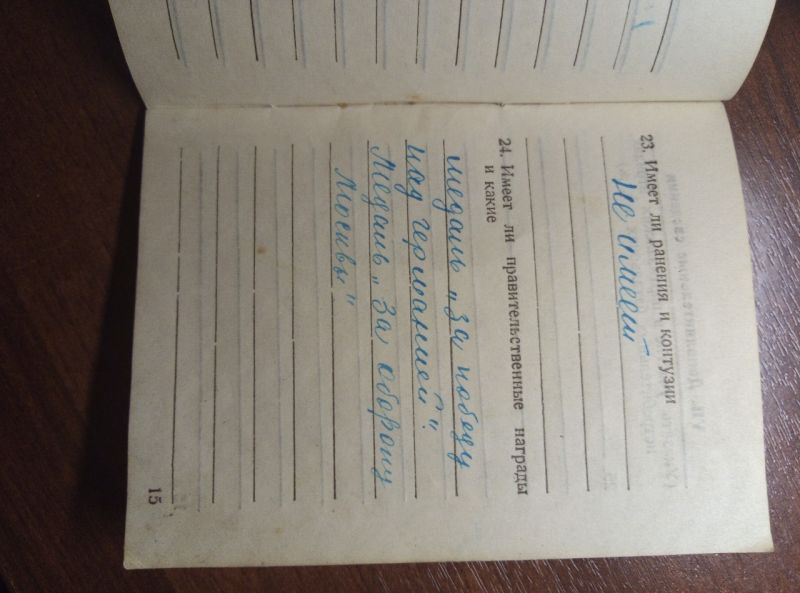 23. Имеет ли ранения и контузии
Не имеет
24. Имеет ли правительственные награды
и какие
медаль „За победу
над германией“.
Медаль „За оборону
Москвы“
15